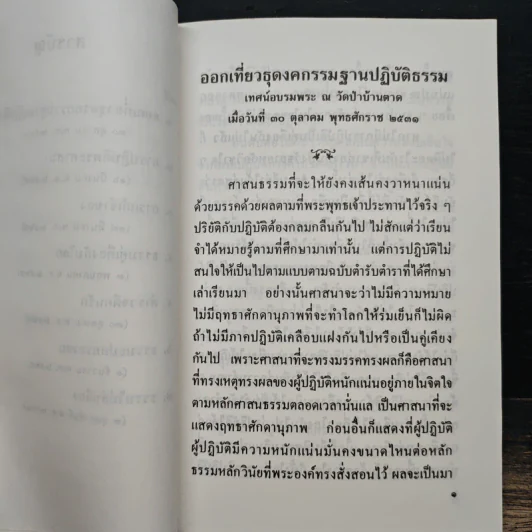 สารบัญ
ออกเที่ยวธุดงคกรรมฐานปฏิบัติธรรม
เทศน์อบรมพระ ณ วัดป่าบ้านตาด
เมื่อวันที่ ๓๐ ตุลาคม พุทธศักราช ๒๕๓๑
ศาสนธรรมที่จะให้ยังคงเส้นคงวาหนาแน่น
ด้วยมรรคด้วยผลตามที่พระพุทธเจ้าประทานไว้จริง ๆ
ปริยัติกับปฏิบัติต้องกลมกลืนกันไป ไม่สักแต่ว่าเรียน
จำได้หมายรู้ตามที่ศึกษามาเท่านั้น แต่การปฏิบัติไม่
สนใจให้เป็นไปตามแบบตามฉบับตำรับตำราที่ได้ศึกษา
เล่าเรียนมา อย่างนั้นศาสนาจะว่าไม่มีความหมาย
ไม่มีฤทธาศักดานุภาพที่จะทำโลกให้ร่มเย็นก็ไม่ผิด
ถ้าไม่มีภาคปฏิบัติเคลือบแฝงกันไปหรือเป็นคู่เคียง
กันไป เพราะศาสนาที่จะทรงมรรคทรงผลก็คือศาสนา
ที่ทรงเหตุทรงผลของผู้ปฏิบัติหนักแน่นอยู่ภายในจิตใจ
ตามหลักศาสนธรรมตลอดเวลานั่นแล เป็นศาสนาที่จะ
แสดงฤทธาศักดานุภาพ ก่อนอื่นก็แสดงที่ผู้ปฏิบัติ
ผู้ปฏิบัติมีความหนักแน่นมั่นคงขนาดไหนต่อหลัก
ธรรมหลักวินัยที่พระองค์ทรงสั่งสอนไว้ ผลจะเป็นมา
๑